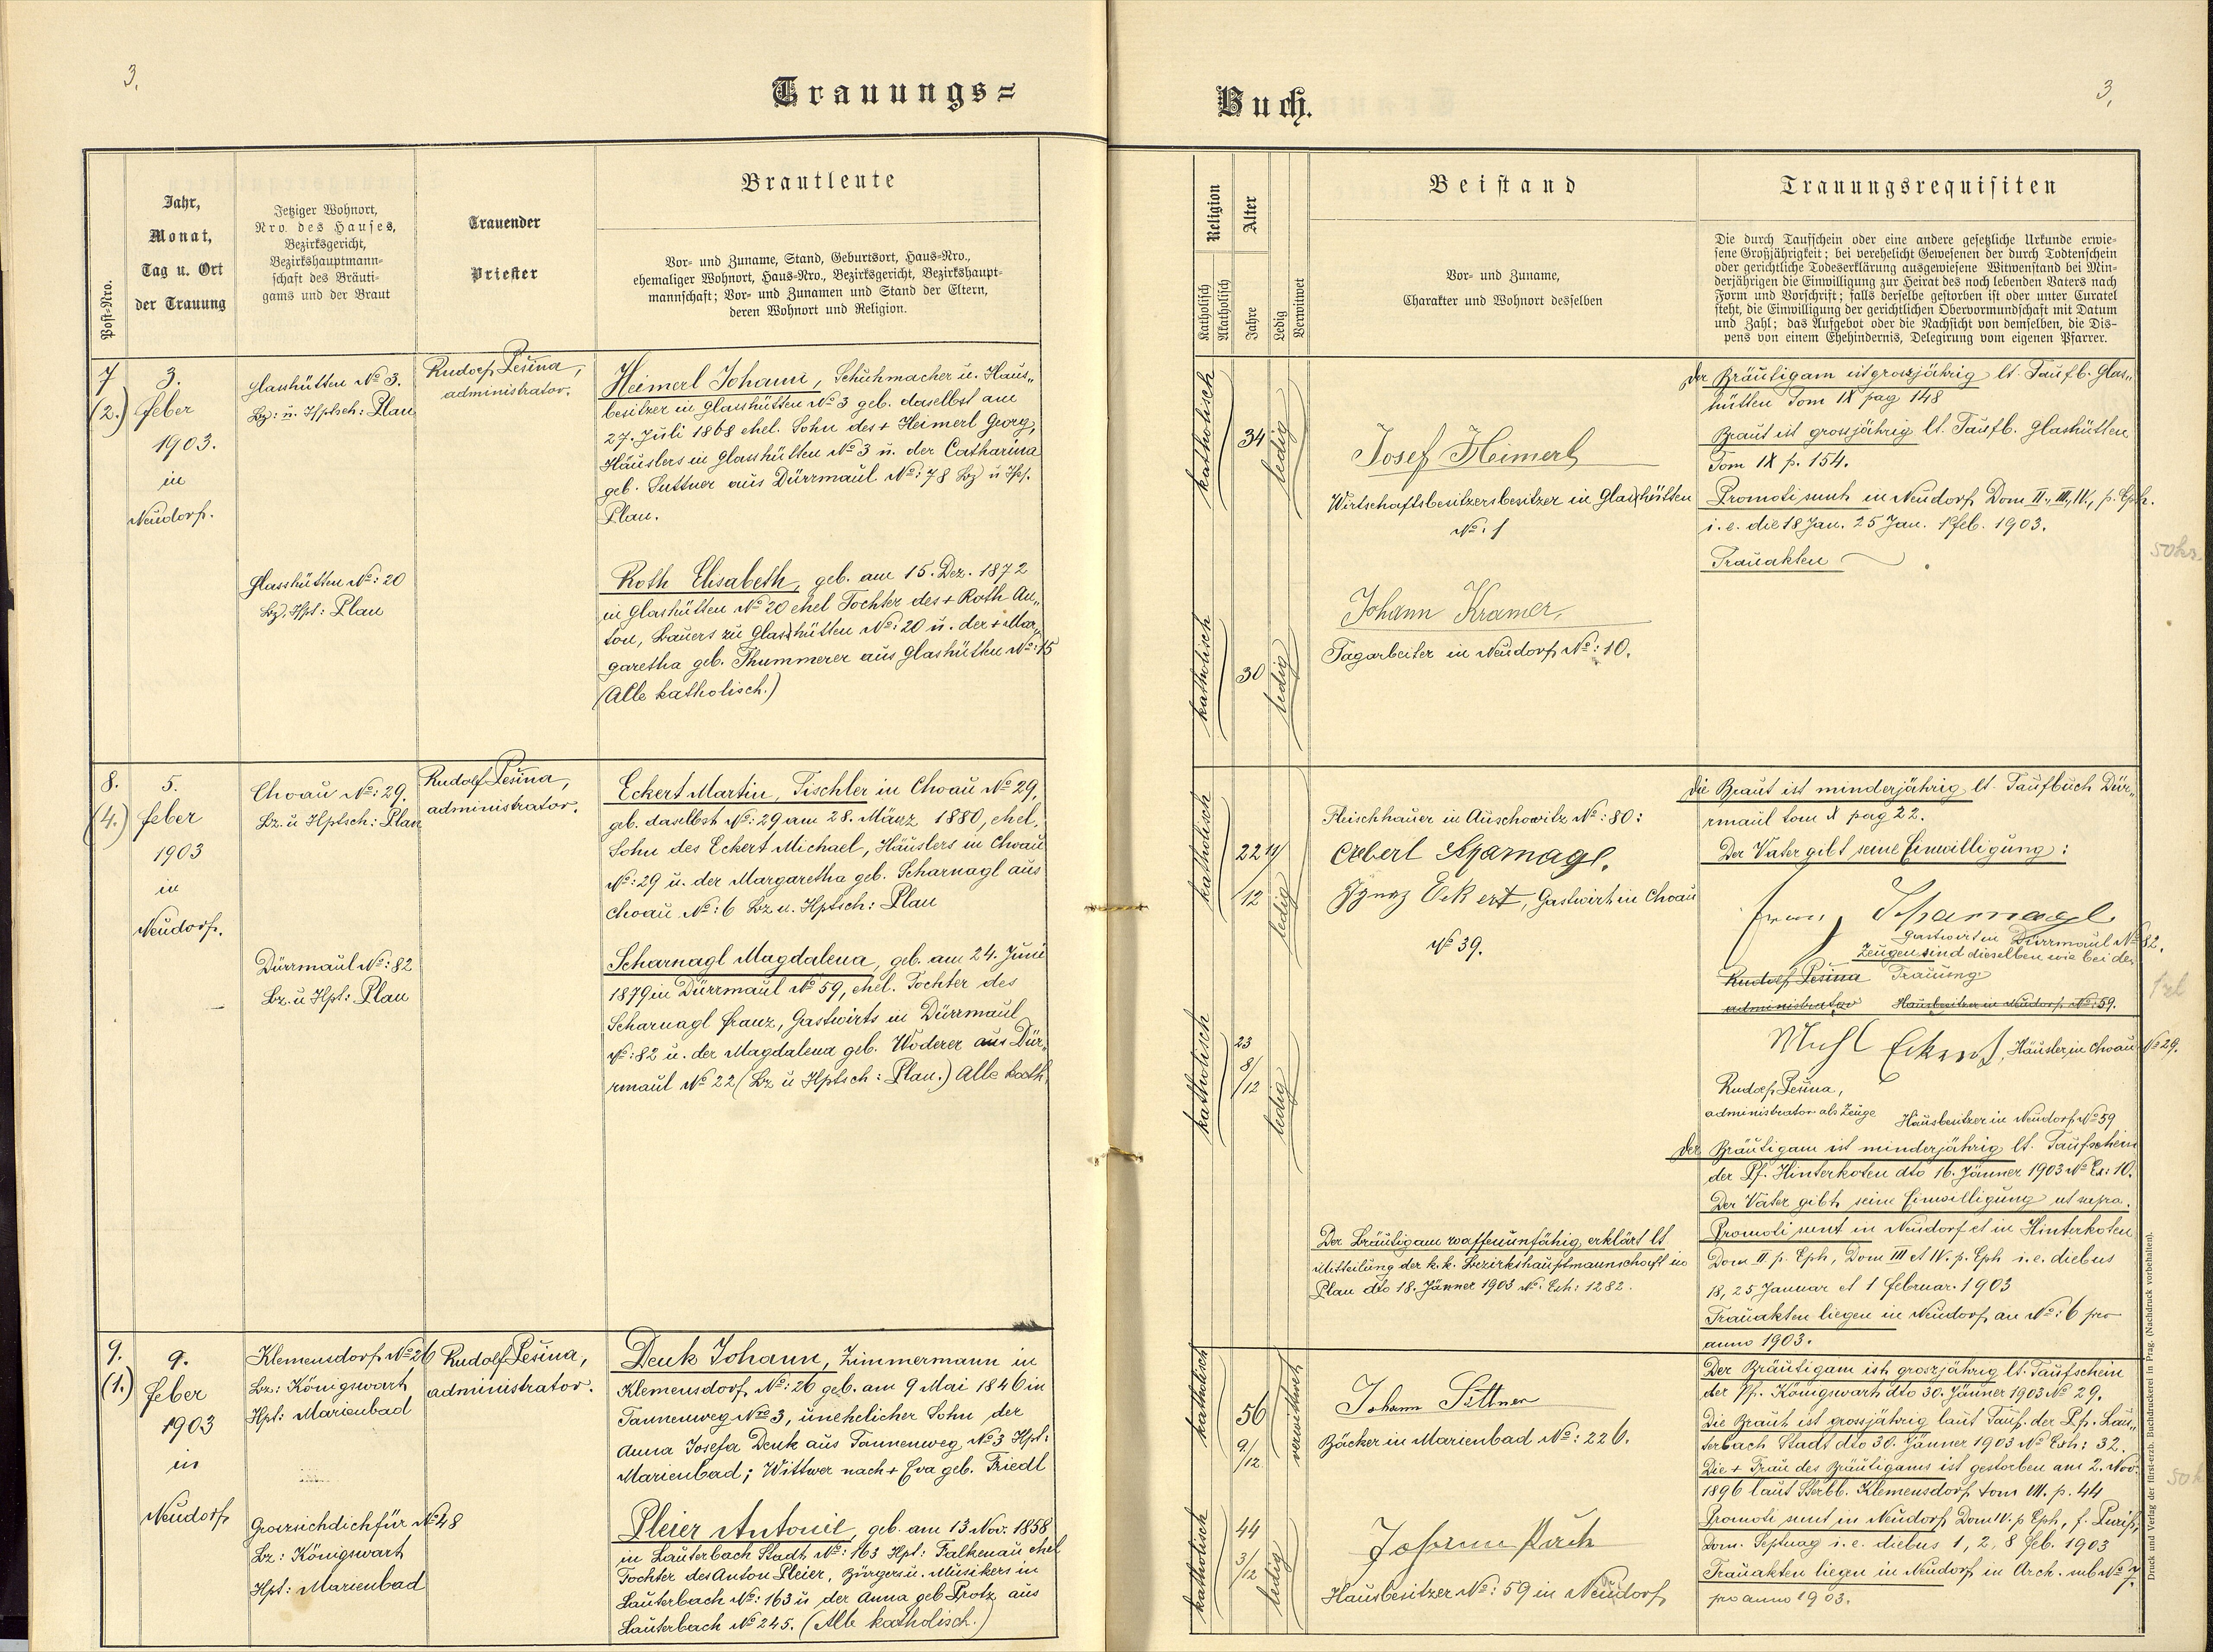 3.
Trauungs=
Post-Nro.
Jahr,
Monat,
Tag u. Ort
der Trauung
Jetziger Wohnort,
Nro. des Hauses,
Bezirksgericht,
Bezirkshauptmann-
schaft des Bräuti-
gams und der Braut
Trauender
Priester
Brautleute
Vor- und Zuname, Stand, Geburtsort, Haus-Nro.,
ehemaliger Wohnort, Haus-Nro., Bezirksgericht, Bezirkshaupt-
mannschaft; Vor- und Zunamen und Stand der Eltern,
deren Wohnort und Religion.
7
(2.)
3.
feber
1903.
in
Neudorf.
Glashütten No 3.
Bz: u. Hptsch: Plan
Glasshütten No: 20
Bz, Hpt: Plan
Rudolf Pešina,
administrator.
Heimerl Johann, Schuhmacher u. Haus„
besitzer in Glasshütten No 3 geb. daselbst am
27. Juli 1868 ehel. Sohn des + Heimerl Georg,
Häuslers in Glasshütten No 3 u. der Catharina
geb. Suttner aus Dürrmaul No: 78 Bz u Hpt.
Plan.
Roth Elisabeth, geb. am 15. Dez. 1872
in Glashütten No 20 ehel Tochter des + Roth An„
ton, Bauers zu Glashütten No: 20 u. der + Mar„
garetha geb. Thummerer aus Glashütten No: 15
(Alle katholisch.)
8.
(4.)
5.
feber
1903
in
Neudorf.
Choau No: 29.
Bz. u Hptsch: Plan
Dürrmaul No: 82
Bz. u Hpt: Plan
Rudolf Pešina,
administrator.
Eckert Martin, Tischler in Choau No 29,
geb. daselbst No: 29 am 28. März 1880, ehel.
Sohn des Eckert Michael, Häuslers in Choau
No: 29 u. der Margaretha geb. Scharnagl aus
Choau No: 6 Bz u. Hptsch: Plan
Scharnagl Magdalena, geb. am 24. Juni
1879 in Dürrmaul No 59, ehel. Tochter des
Scharnagl Franz, Gastwirts in Dürrmaul
No: 82 u. der Magdalena geb. Woderer aus Dür„
rmaul No 22 (Bz u Hptsch: Plan.) Alle kath.
9.
(1.)
9.
feber
1903
in
Neudorf
Klemensdorf No 26
Bz: Königswart
Hpt: Marienbad
Grossichdichfür No 48
Bz: Königswart
Hpt: Marienbad
Rudolf Pešina,
administrator.
Denk Johann, Zimmermann in
Klemensdorf No: 26 geb. am 9 Mai 1846 in
Tannenweg Nro 3, unehelicher Sohn der
Anna Josefa Denk aus Tannenweg No 3 Hpt:
Marienbad; Wittwer nach + Eva geb. Friedl
Pleier Antonie, geb. am 13 Nov. 1858
in Lauterbach Stadt No: 163 Hpt: Falkenau ehel
Tochter des Anton Pleier, Bürgers u. Musikers in
Lauterbach No: 163 u der Anna geb Protz aus
Lauterbach No 245. (Alle katholisch.)
3.
Buch.
Religion
Katholisch
Akatholisch
Alter
Jahre
Ledig
Verwitwet
Beistand
Vor- und Zuname,
Charakter und Wohnort desselben
Trauungsrequisiten
Die durch Taufschein oder eine andere gesetzliche Urkunde erwie-
sene Großjährigkeit; bei verehelicht Gewesenen der durch Todtenschein
oder gerichtliche Todeserklärung ausgewiesene Witwenstand bei Min-
derjährigen die Einwilligung zur Heirat des noch lebenden Vaters nach
Form und Vorschrift; falls derselbe gestorben ist oder unter Curatel
steht, die Einwilligung der gerichtlichen Obervormundschaft mit Datum
und Zahl; das Aufgebot oder die Nachsicht von demselben, die Dis-
pens von einem Ehehindernis, Delegirung vom eigenen Pfarrer.
katholisch
34
ledig
Josef Heimerl
Wirtschaftsbesitzersbesitzer in Glashütten
No: 1
katholisch
30
ledig
Johann Kramer,
Tagarbeiter in Neudorf No: 10.
Der Bräutigam ist grossjährig lt. Taufb. Glas„
hütten Tom IX pag 148
Braut ist grossjährig lt. Taufb. Glashütten
Tom IX p. 154.
Promoti sunt in Neudorf Dom II., III., IV., p. Eph.
i. e. die 18 Jan. 25 Jan. 1 feb. 1903.
Trauakten
50 kr.
katholisch
22 11/12
ledig
Fleischhauer in Auschowitz No: 80:
Ignaz Eckert, Gastwirt in Choau
No 39.
katholisch
23 8/12
ledig
Der Bräutigam waffenunfähig erklärt lt
Mitteilung der k. k. Bezirkshauptmannschaft in
Plan dto 18. Jänner 1903 No: Exh: 1282.
Die Braut ist minderjährig lt. Taufbuch Dür„
rmaul tom X pag 22.
Der Vater gibt seine Einwilligung:
Franz Scharnagl
Gastwirt in Dürrmaul No 82.
Zeugen sind dieselben wie bei der
Rudolf Pešina Trauung
administrator Hausbesitzer in Neudorf No: 59.
Michl Eckert, Häusler in Choau No 29.
Rudolf Pešina,
administrator als Zeuge Hausbesitzer in Neudorf No 59
Der Bräutigam ist minderjährig lt. Taufschein
der Pf. Hinterkoten dto 16. Jänner 1903 No Ex: 10.
Der Vater gibt seine Einwilligung ut supra.
Promoti sunt in Neudorf et in Hinterkoten
Dom II p. Eph, Dom III et IV. p. Eph i. e. diebus
18, 25 Januar et 1 februar 1903
Trauakten liegen in Neudorf an No: 6 pro
anno 1903.
katholisch
56 9/12
verwitwet
Johann Sittner
Bäcker in Marienbad No: 226.
katholisch
44 3/12
ledig
Hausbesitzer No: 59 in Neudorf
Der Bräutigam ist grossjährig lt. Taufschein
der Pf. Königswart dto 30. Jänner 1903 No 29.
Die Braut ist grossjährig laut Tauf. der Pf. Lau„
terbach Stadt dto 30. Jänner 1903 No Exh: 32.
Die + Frau des Bräutigams ist gestorben am 2. Nov.
1896 laut Sterbb. Klemensdorf tom III. p. 44
Promoti sunt in Neudorf Dom IV. p Eph, f. Purif,
Dom. Septuag i. e. diebus 1, 2, 8 feb. 1903
Trauakten liegen in Neudorf in Arch. sub No 7.
pro anno 1903.
Druck und Verlag der fürst-erzb. Buchdruckerei in Prag. (Nachdruck vorbehalten).